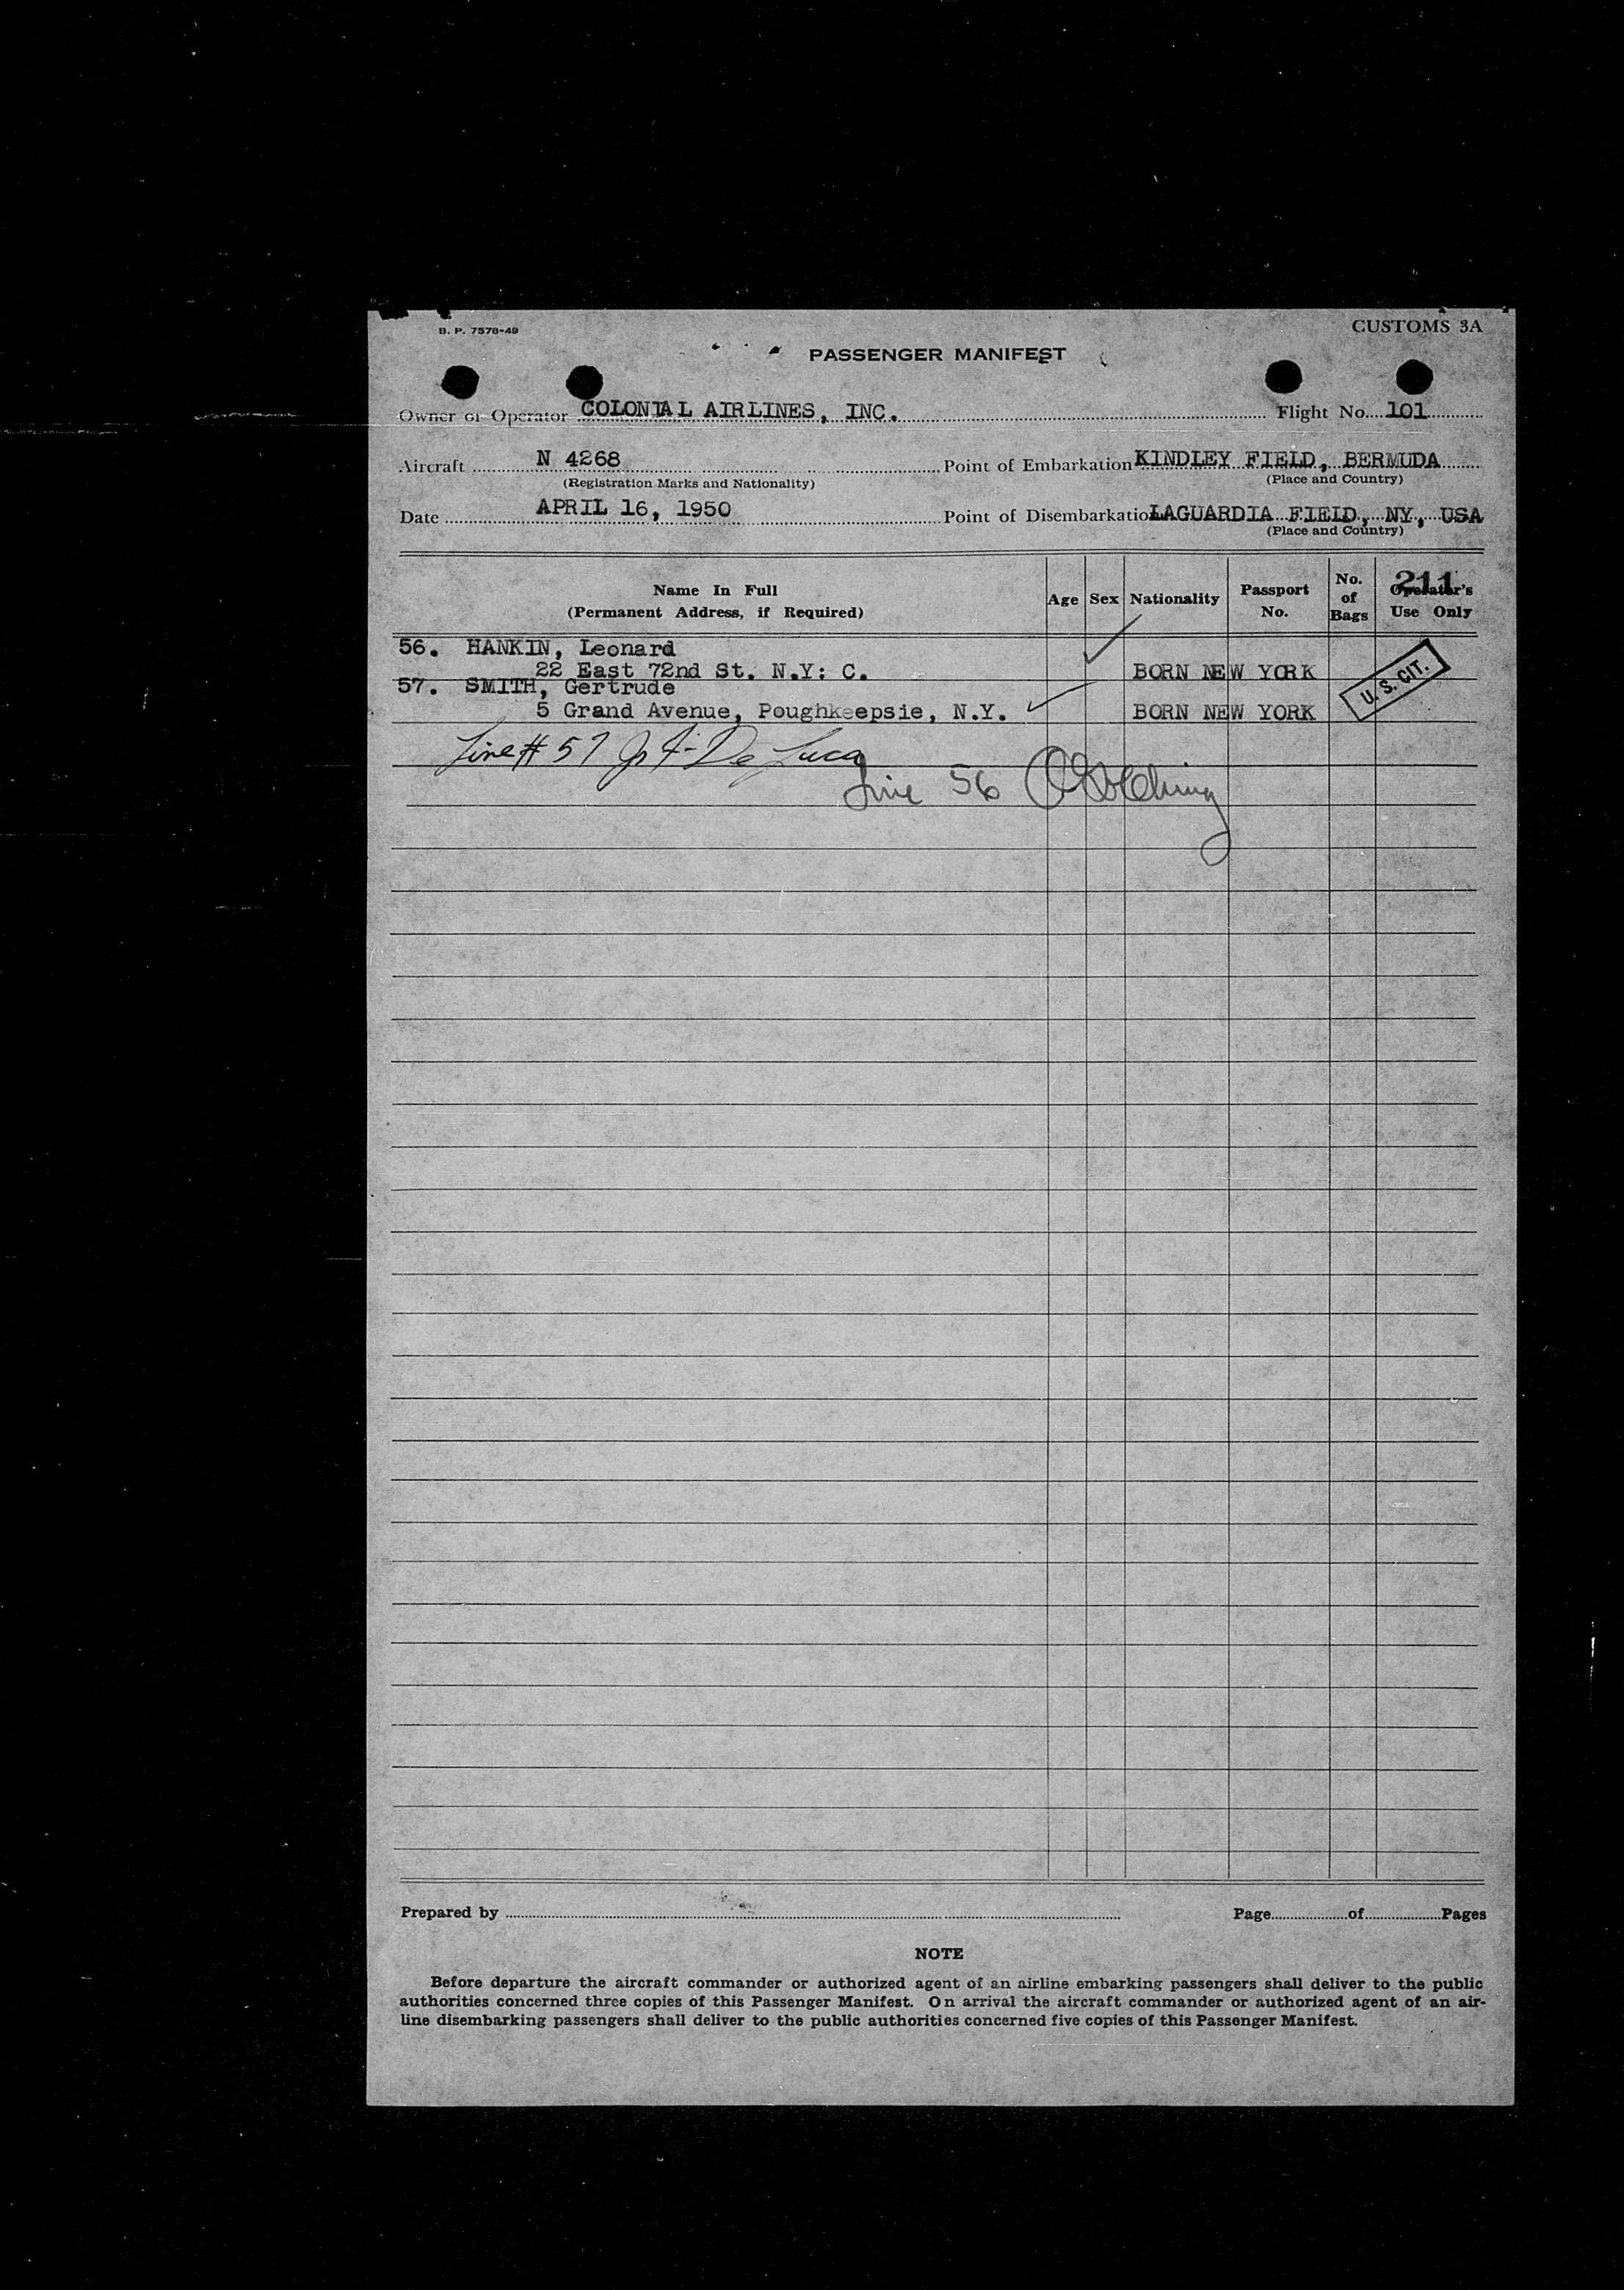 B. P. 7578-49
CUSTOMS 3A
PASSENGER MANIFEST
Owner or Operator COLONIAL AIRLINES, INC. Flight No. 101
Aircraft N 4268 Point of Embarkation KINDLEY FIELD, BERMUDA
(Registration Marks and Nationality) (Place and Country)
Date APRIL 16, 1950 Point of Disembarkation LAGUARDIA FIELD, NY, USA
(Place and Country)
Name In Full (Permanent Address, if Required) Age Sex Nationality Passport No. No. of Bags Operator's Use Only
211
56. HANKIN, Leonard
22 East 72nd St. N.Y: C. BORN NEW YORK
U. S. CIT.
57. SMITH, Gertrude
5 Grand Avenue, Poughkeepsie, N.Y. BORN NEW YORK
Line # 57 De Luca
Line 56
Prepared by Page of Pages
NOTE
Before departure the aircraft commander or authorized agent of an airline embarking passengers shall deliver to the public
authorities concerned three copies of this Passenger Manifest. On arrival the aircraft commander or authorized agent of an air-
line disembarking passengers shall deliver to the public authorities concerned five copies of this Passenger Manifest.